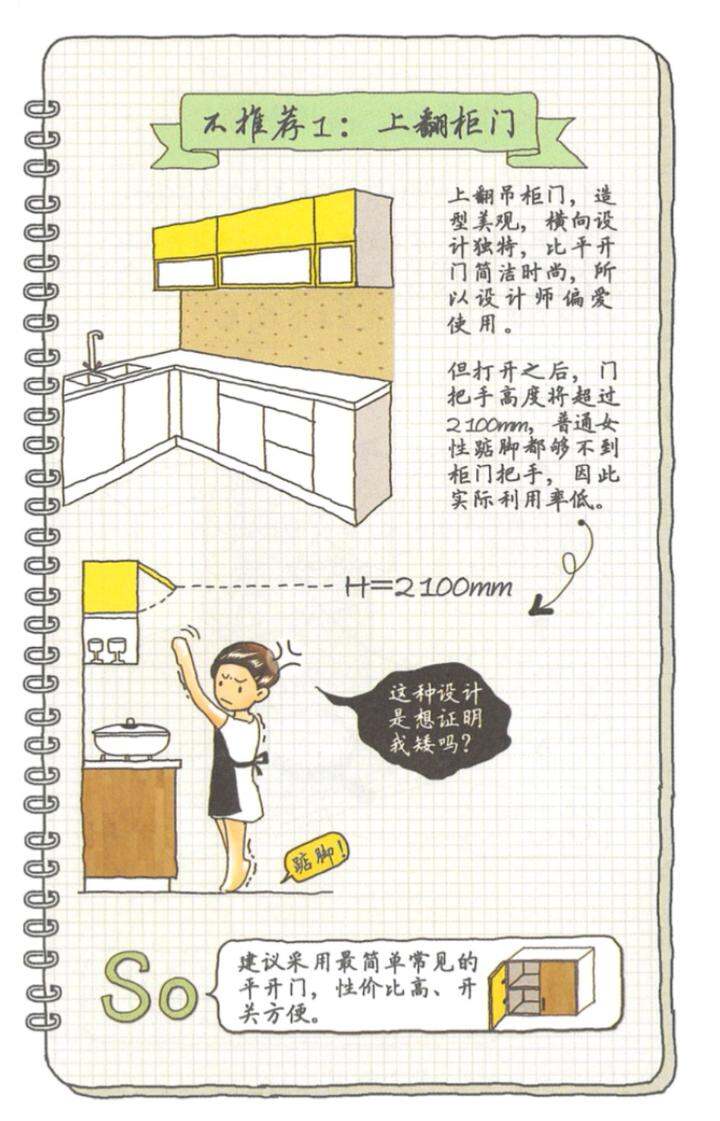 不推荐1：上翻柜门
上翻吊柜门，造
型美观，横向设
计独特，比平开
门简洁时尚，所
以设计师偏爱
使用。
但打开之后，门
把手高度将超过
2100mm，普通女
性踮脚都够不到
柜门把手，因此
实际利用率低。
H=2100mm
这种设计
是想证明
我矮吗？
踮脚！
So
建议采用最简单常见的
平开门，性价比高、开
关方便。